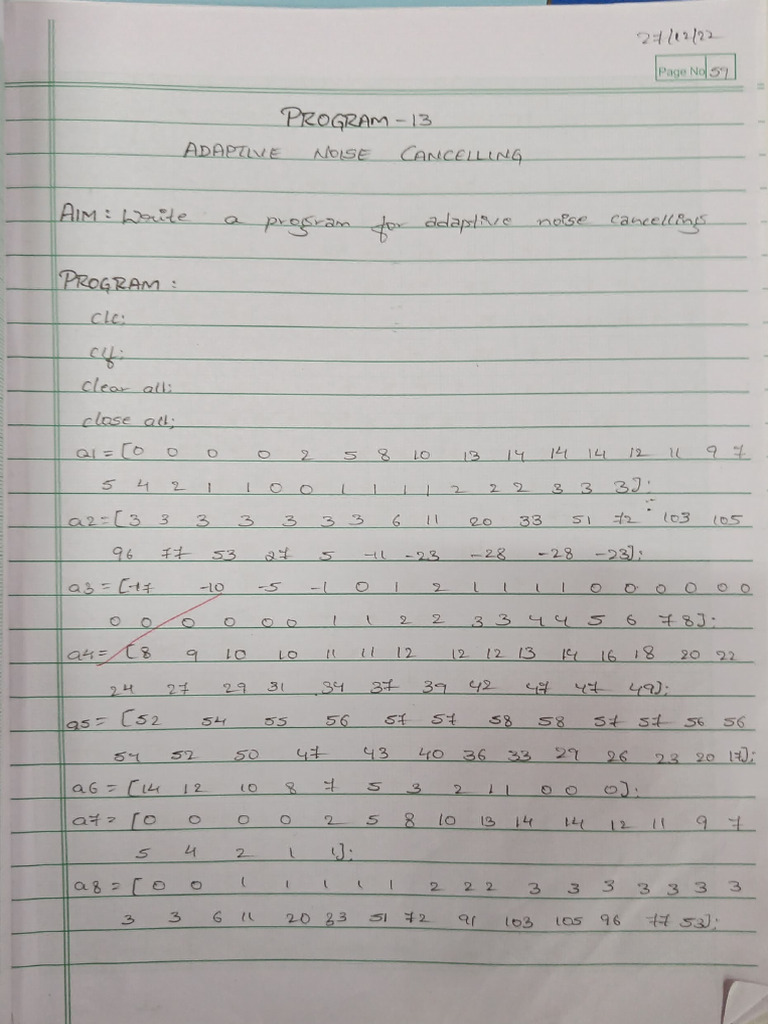 27/12/22
Page No 59
PROGRAM-13
ADAPTIVE NOISE CANCELLING
AIM: Write a program for adaptive noise cancellings
PROGRAM:
clc;
clf;
clear all;
close all;
a1=[0 0 0 0 2 5 8 10 13 14 14 14 12 11 9 7
5 4 2 1 1 0 0 1 1 1 1 2 2 2 3 3 3];
a2=[3 3 3 3 3 3 3 6 11 20 33 51 72 103 105
96 77 53 27 5 -11 -23 -28 -28 -23];
a3=[-17 -10 -5 -1 0 1 2 1 1 1 1 0 0 0 0 0 0
0 0 0 0 0 0 1 1 2 2 3 3 4 4 5 6 7 8];
a4=[8 9 10 10 11 11 12 12 12 13 14 16 18 20 22
24 27 29 31 34 37 39 42 47 47 49];
a5=[52 54 55 56 57 57 58 58 57 57 56 56
54 52 50 47 43 40 36 33 29 26 23 20 17];
a6=[14 12 10 8 7 5 3 2 1 1 0 0 0];
a7=[0 0 0 0 2 5 8 10 13 14 14 12 11 9 7
5 4 2 1 1];
a8=[0 0 1 1 1 1 1 2 2 2 3 3 3 3 3 3 3
3 3 6 11 20 33 51 72 91 103 105 96 77 53];